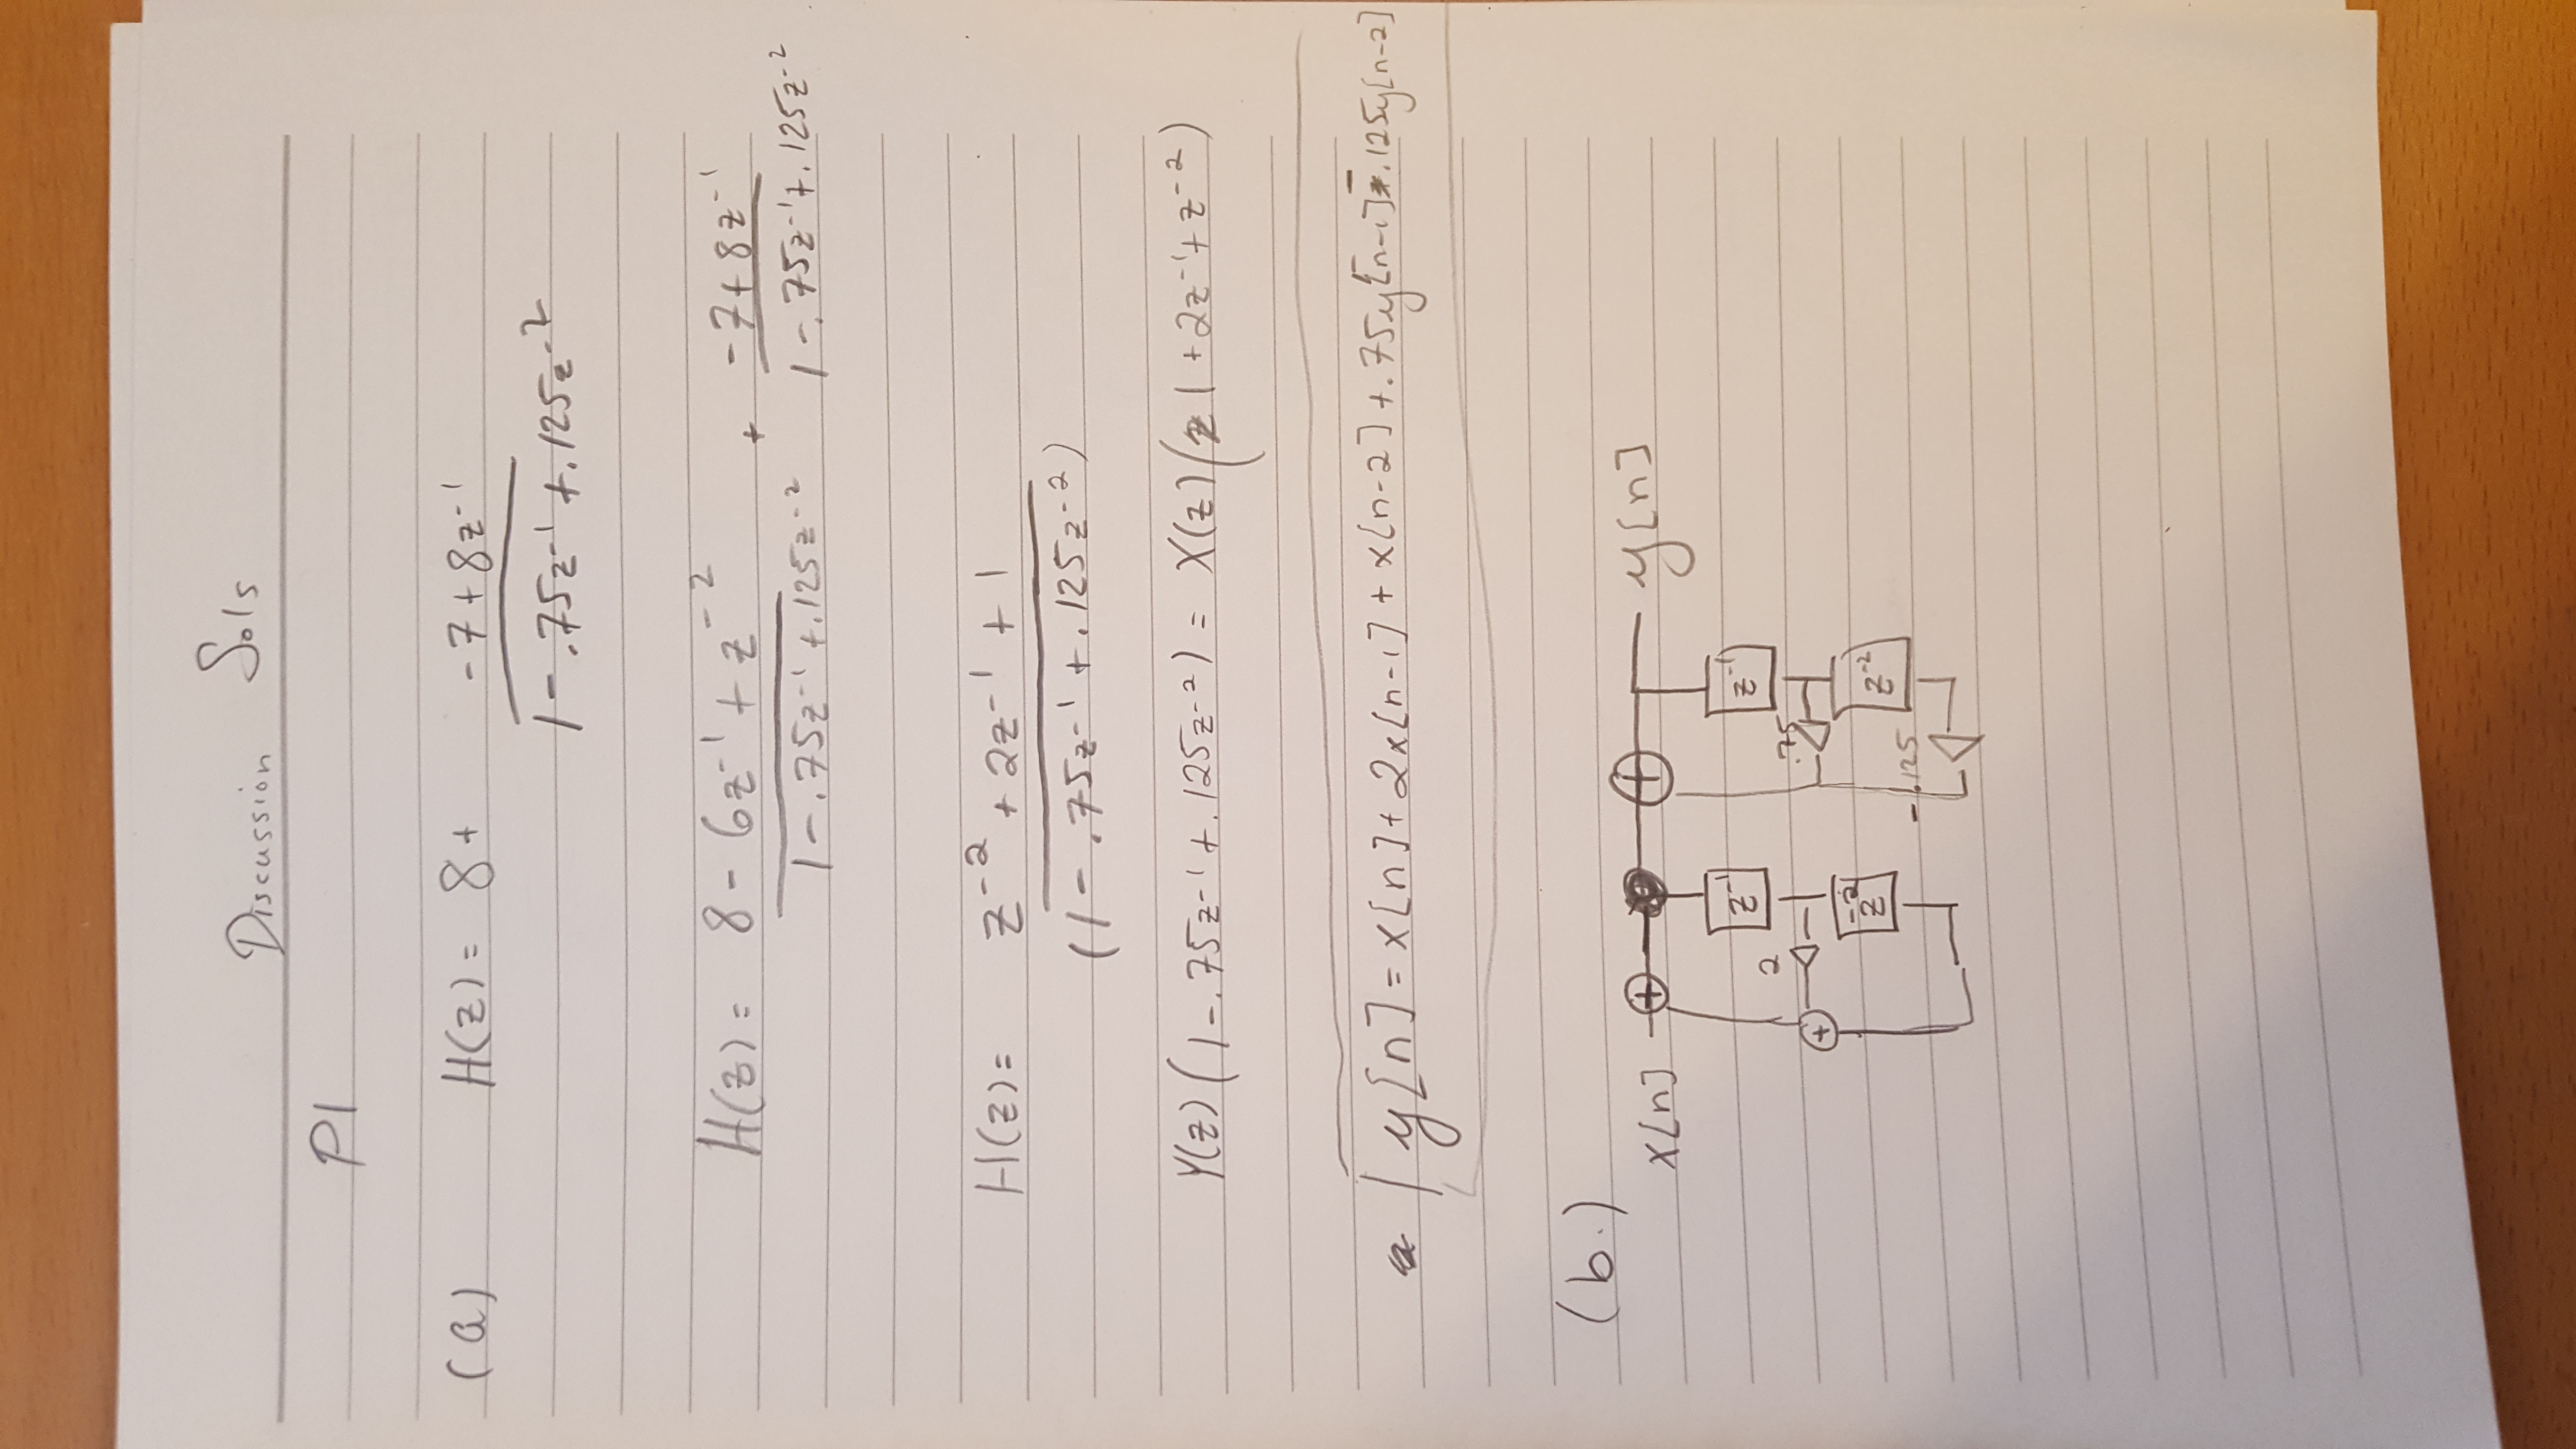 Discussion Sols
P1
(a) H(z) = 8 + (-7 + 8z^-1) / (1 - .75z^-1 + .125z^-2)
H(z) = (8 - 6z^-1 + z^-2) / (1 - .75z^-1 + .125z^-2) + (-7 + 8z^-1) / (1 - .75z^-1 + .125z^-2)
H(z) = (z^-2 + 2z^-1 + 1) / (1 - .75z^-1 + .125z^-2)
Y(z)(1 - .75z^-1 + .125z^-2) = X(z)(1 + 2z^-1 + z^-2)
y[n] = x[n] + 2x[n-1] + x[n-2] + .75y[n-1] - .125y[n-2]
(b.)
x[n] + + y[n]
z^-1 z^-1
2 .75
+
z^-2 z^-2
-.125